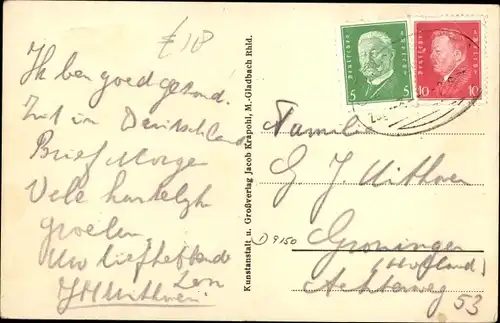 £ 18
Ik ben goed gezond.
Zit in Deutschland
Brief Morgen
Vele hartelyk
groeten,
Uw liefhebbende
Zoon
J H Uithoven
Kunstanstalt u. Großverlag Jacob Krapohl, M.-Gladbach Rhld.
Deutsches Reich
5 5
Deutsches Reich
10 10
Familie
G J Uithoven
9150
Groningen
(Holland)
Achterweg 53